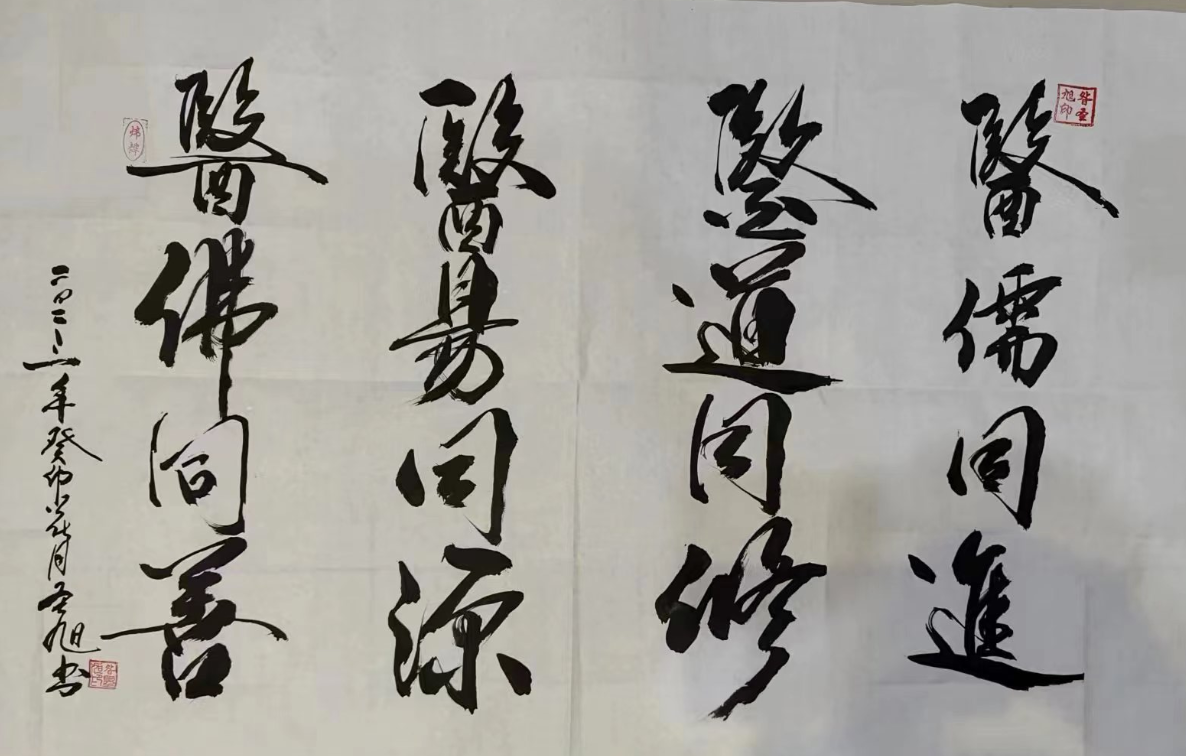 醫儒同進
醫道同修
醫易同源
醫佛同善
二〇二三年癸卯花月圣旭书